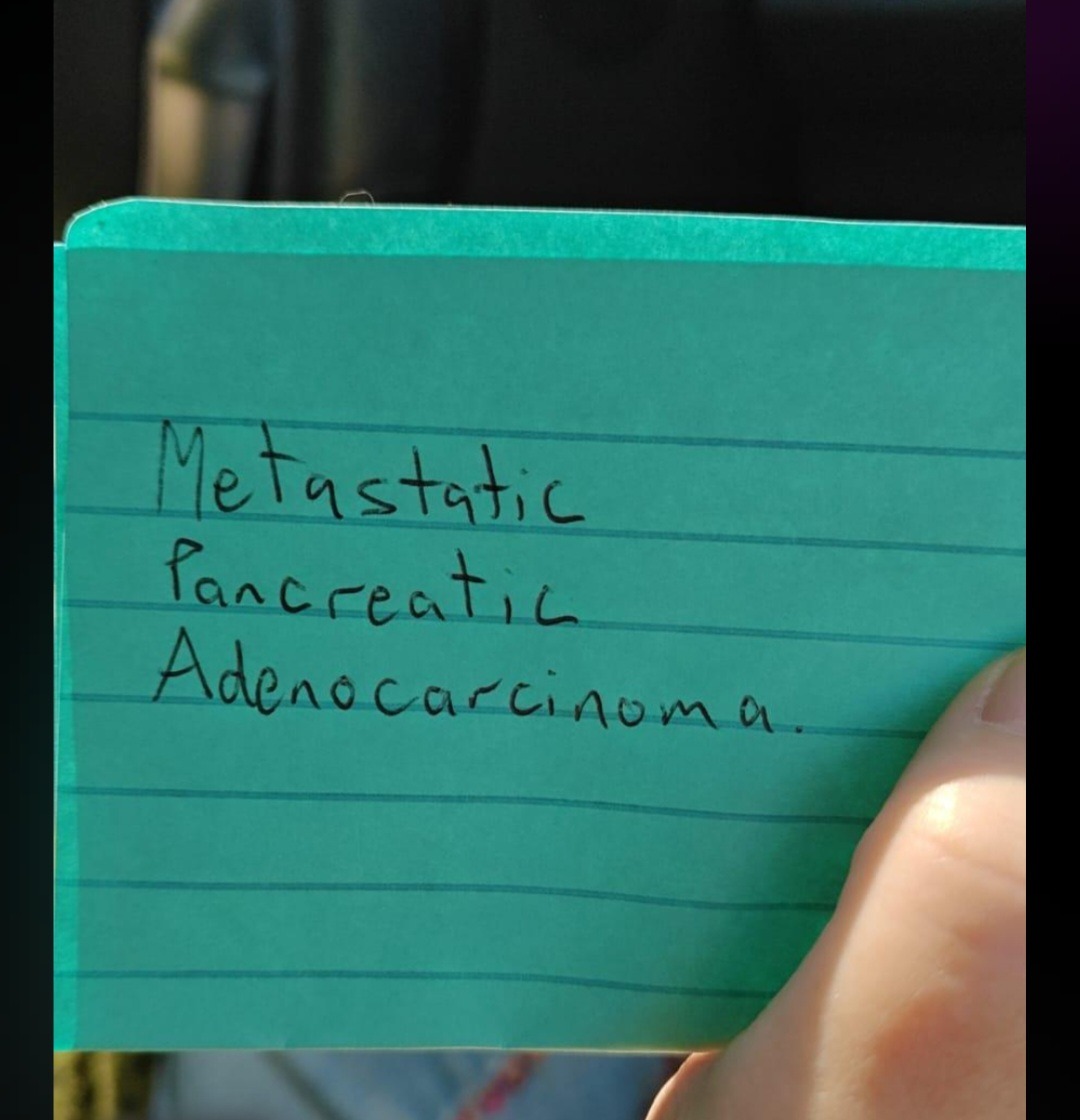 Metastatic
Pancreatic
Adenocarcinoma.